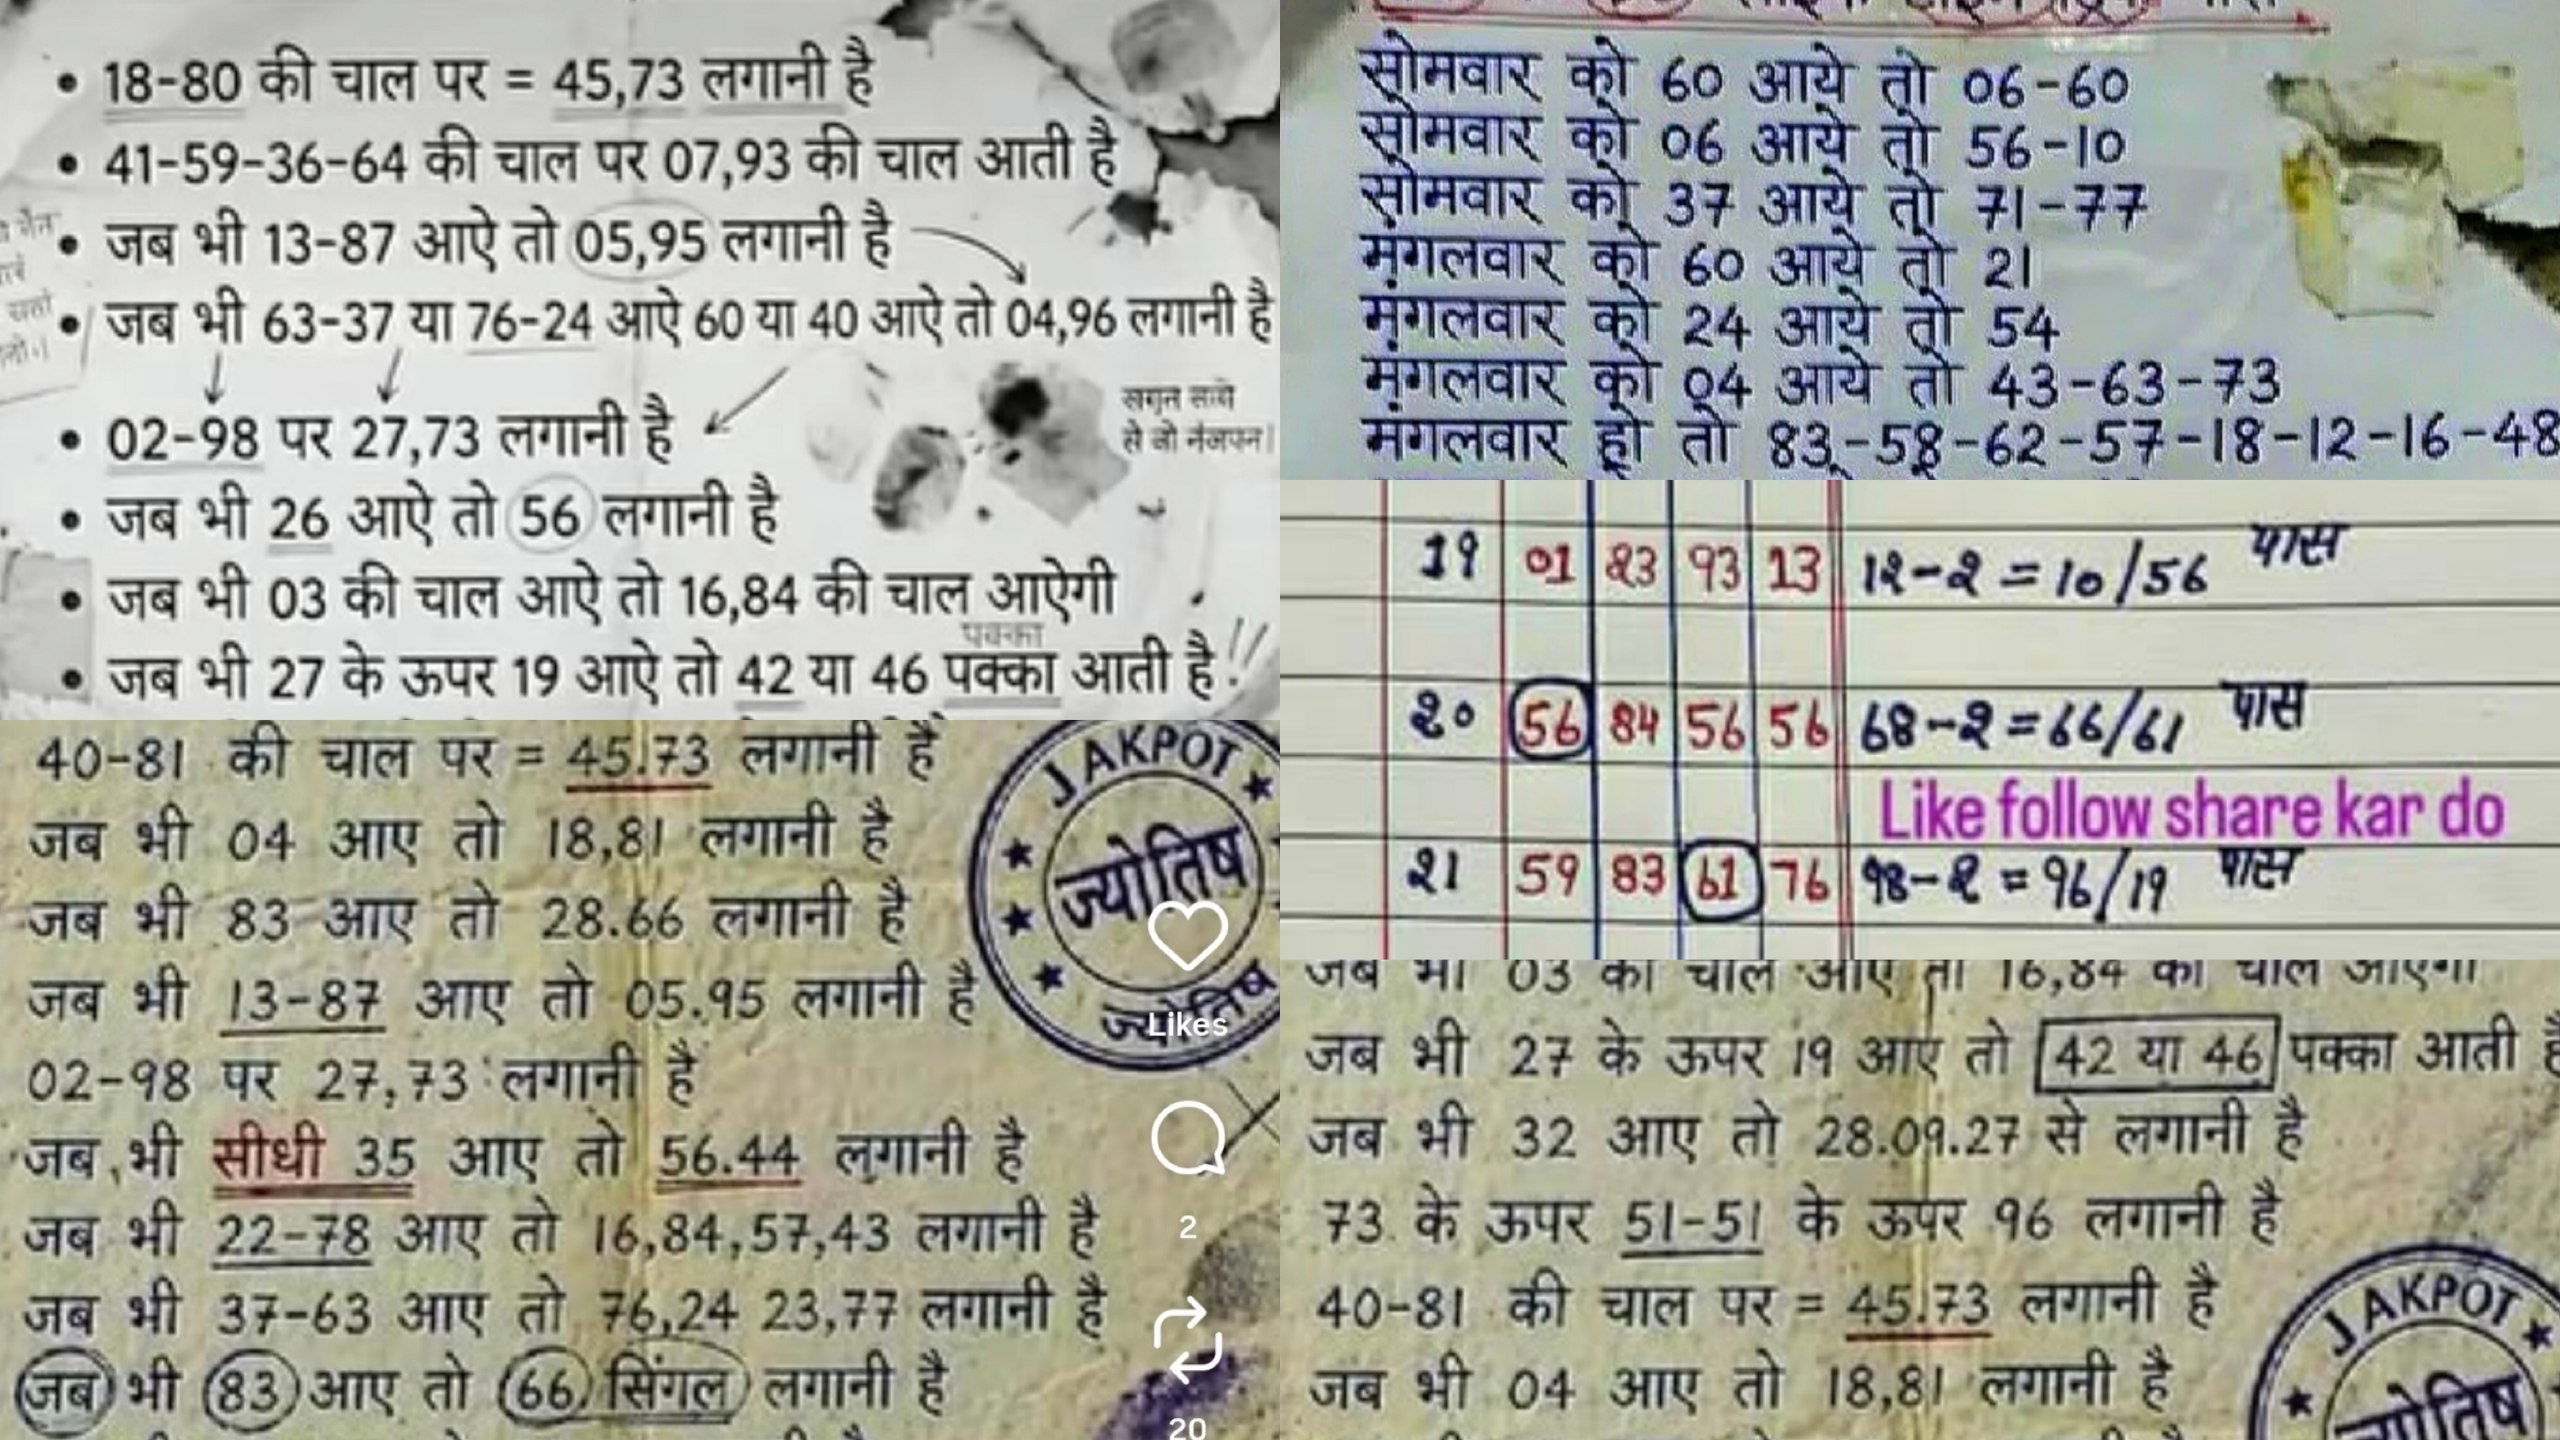 18-80 की चाल पर = 45,73 लगानी है
41-59-36-64 की चाल पर 07,93 की चाल आती है
जब भी 13-87 आऐ तो 05,95 लगानी है
जब भी 63-37 या 76-24 आऐ 60 या 40 आऐ तो 04,96 लगानी है
02-98 पर 27,73 लगानी है
जब भी 26 आऐ तो 56 लगानी है
जब भी 03 की चाल आऐ तो 16,84 की चाल आऐगी
पक्का
जब भी 27 के ऊपर 19 आऐ तो 42 या 46 पक्का आती है!!
सोमवार को 60 आये तो 06-60
सोमवार को 06 आये तो 56-10
सोमवार को 37 आये तो 71-77
मंगलवार को 60 आये तो 21
मंगलवार को 24 आये तो 54
मंगलवार को 04 आये तो 43-63-73
मंगलवार हो तो 83-58-62-57-18-12-16-48
19 01 23 93 13 12-2=10/56 पास
20 56 84 56 56 68-2=66/61 पास
Like follow share kar do
21 59 83 61 76 98-2=96/19 पास
40-81 की चाल पर = 45.73 लगानी है
जब भी 04 आए तो 18,81 लगानी है
जब भी 83 आए तो 28.66 लगानी है
जब भी 13-87 आए तो 05.95 लगानी है
02-98 पर 27,73 लगानी है
जब भी सीधी 35 आए तो 56.44 लगानी है
जब भी 22-78 आए तो 16,84,57,43 लगानी है
जब भी 37-63 आए तो 76,24 23,77 लगानी है
जब भी 83 आए तो 66 सिंगल लगानी है
JAKPOT
ज्योतिष
ज्योतिष
Likes
2
20
जब भी 03 की चाल आए तो 16,84 की चाल आएगी
जब भी 27 के ऊपर 19 आए तो 42 या 46 पक्का आती है
जब भी 32 आए तो 28.09.27 से लगानी है
73 के ऊपर 51-51 के ऊपर 96 लगानी है
40-81 की चाल पर = 45.73 लगानी है
जब भी 04 आए तो 18,81 लगानी है
JAKPOT
ज्योतिष